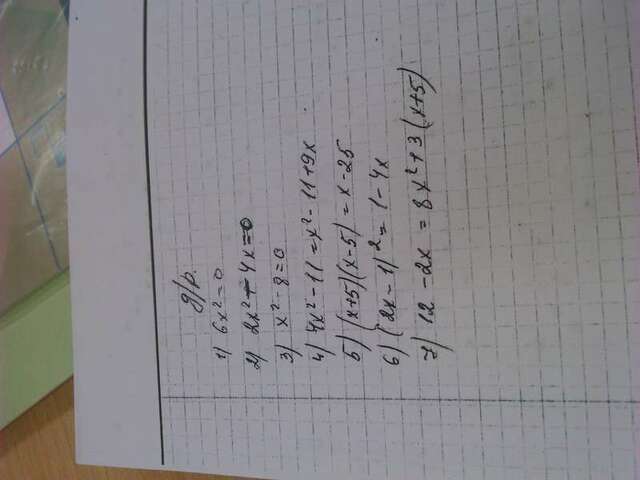 д/р.
1) 6x²=0
2) 2x²-4x=0
3) x²-8=0
4) 4x²-11=x²-11+9x
5) (x+5)(x-5)=x-25
6) (2x-1)²=1-4x
7) 12-2x=8x²+3(x+5)